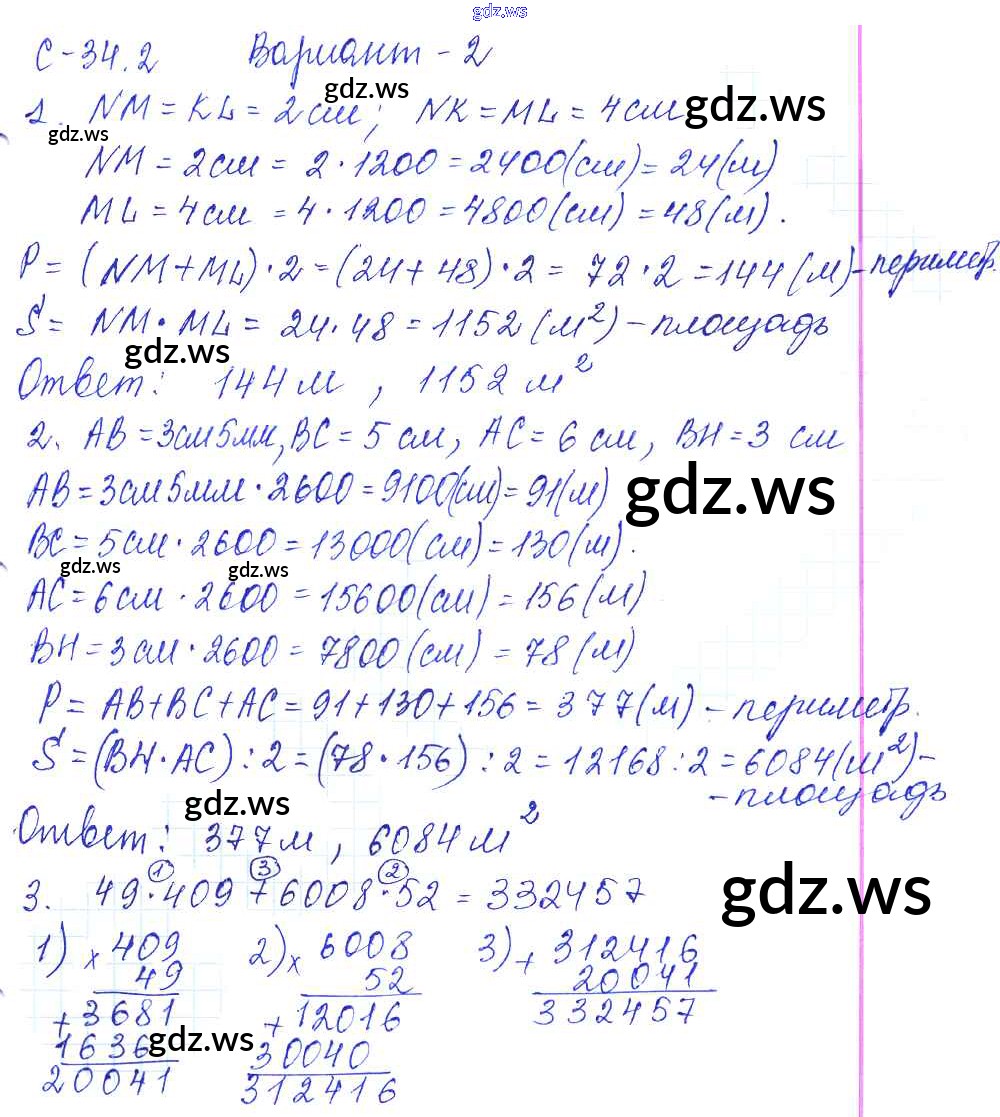 gdz.ws
С-34.2 Вариант - 2
gdz.ws
1. NM = KL = 2 см; NK = ML = 4 см gdz.ws
gdz.ws
NM = 2 см = 2 · 1200 = 2400 (см) = 24 (м)
ML = 4 см = 4 · 1200 = 4800 (см) = 48 (м).
P = (NM + ML) · 2 = (24 + 48) · 2 = 72 · 2 = 144 (м) - периметр.
S = NM · ML = 24 · 48 = 1152 (м²) - площадь
gdz.ws
Ответ: 144 м, 1152 м²
2. AB = 3 см 5 мм, BC = 5 см, AC = 6 см, BH = 3 см
AB = 3 см 5 мм · 2600 = 9100 (см) = 91 (м) gdz.ws
BC = 5 см · 2600 = 13000 (см) = 130 (м).
gdz.ws gdz.ws
AC = 6 см · 2600 = 15600 (см) = 156 (м)
BH = 3 см · 2600 = 7800 (см) = 78 (м)
P = AB + BC + AC = 91 + 130 + 156 = 377 (м) - периметр.
S = (BH · AC) : 2 = (78 · 156) : 2 = 12168 : 2 = 6084 (м²) -
- площадь
gdz.ws
Ответ: 377 м, 6084 м²
1 3 2
3. 49 · 409 + 6008 · 52 = 332457 gdz.ws
1) × 409 2) × 6008 3) + 312416
49 52 20041
+ 3681 + 12016 332457
1636 gdz.ws 30040
20041 312416